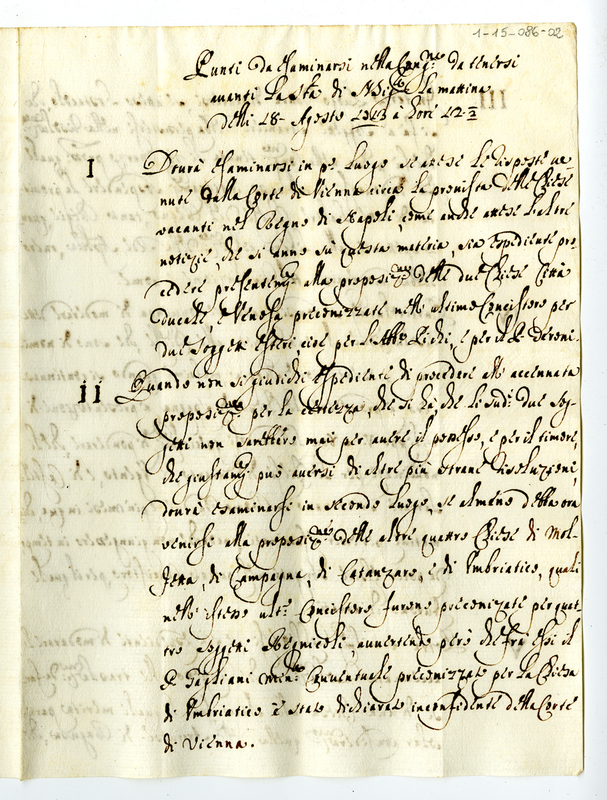 1-15-086-02
Punti da esaminarsi nella Cong.ne da tenersi
avanti la S.tà di N. Sig.re la mattina
delli 28 Agosto 1713 à hore 12
I Dovrà esaminarsi in p.o luogo se atese le risposte ve
nute dalla Corte di Vienna circa la provista delle Chiese
vacanti nel Regno di Napoli, come anche atese l'altre
notizie, che si anno sù questa materia, sia espediente pro
cedere presentem.te alla proposiz.ne delle due Chiese Città
Ducale, e Venosa preconizzate nell' ultimo Concistoro per
due soggetti esteri, cioè per l'Abb.e e per il P.
ii Quando non si giudichi espediente di procedere all' accennata
proposiz.ne per la certezza, che si hà, che li sud.i due sog-
getti non sarebbero mai per avere il possesso, e per il timore,
che giustam.te può aversi di altre più strane risoluzioni,
dovrà esaminarsi in secondo luogo, se almeno debba ora
venirsi alla proposiz.ne delle altre quattro Chiese di Mol-
fetta, di Campagna, di Catanzaro, e di Umbriatico, quali
nello istesso ult.o Concistoro furono preconizzate per quat-
tro soggetti Regnicoli, avvertendo però che frà essi il
P. Galliani Min.re Conventuale preconizzato per la Chiesa
di Umbriatico è stato dichiarato inconfidente della Corte
di Vienna.